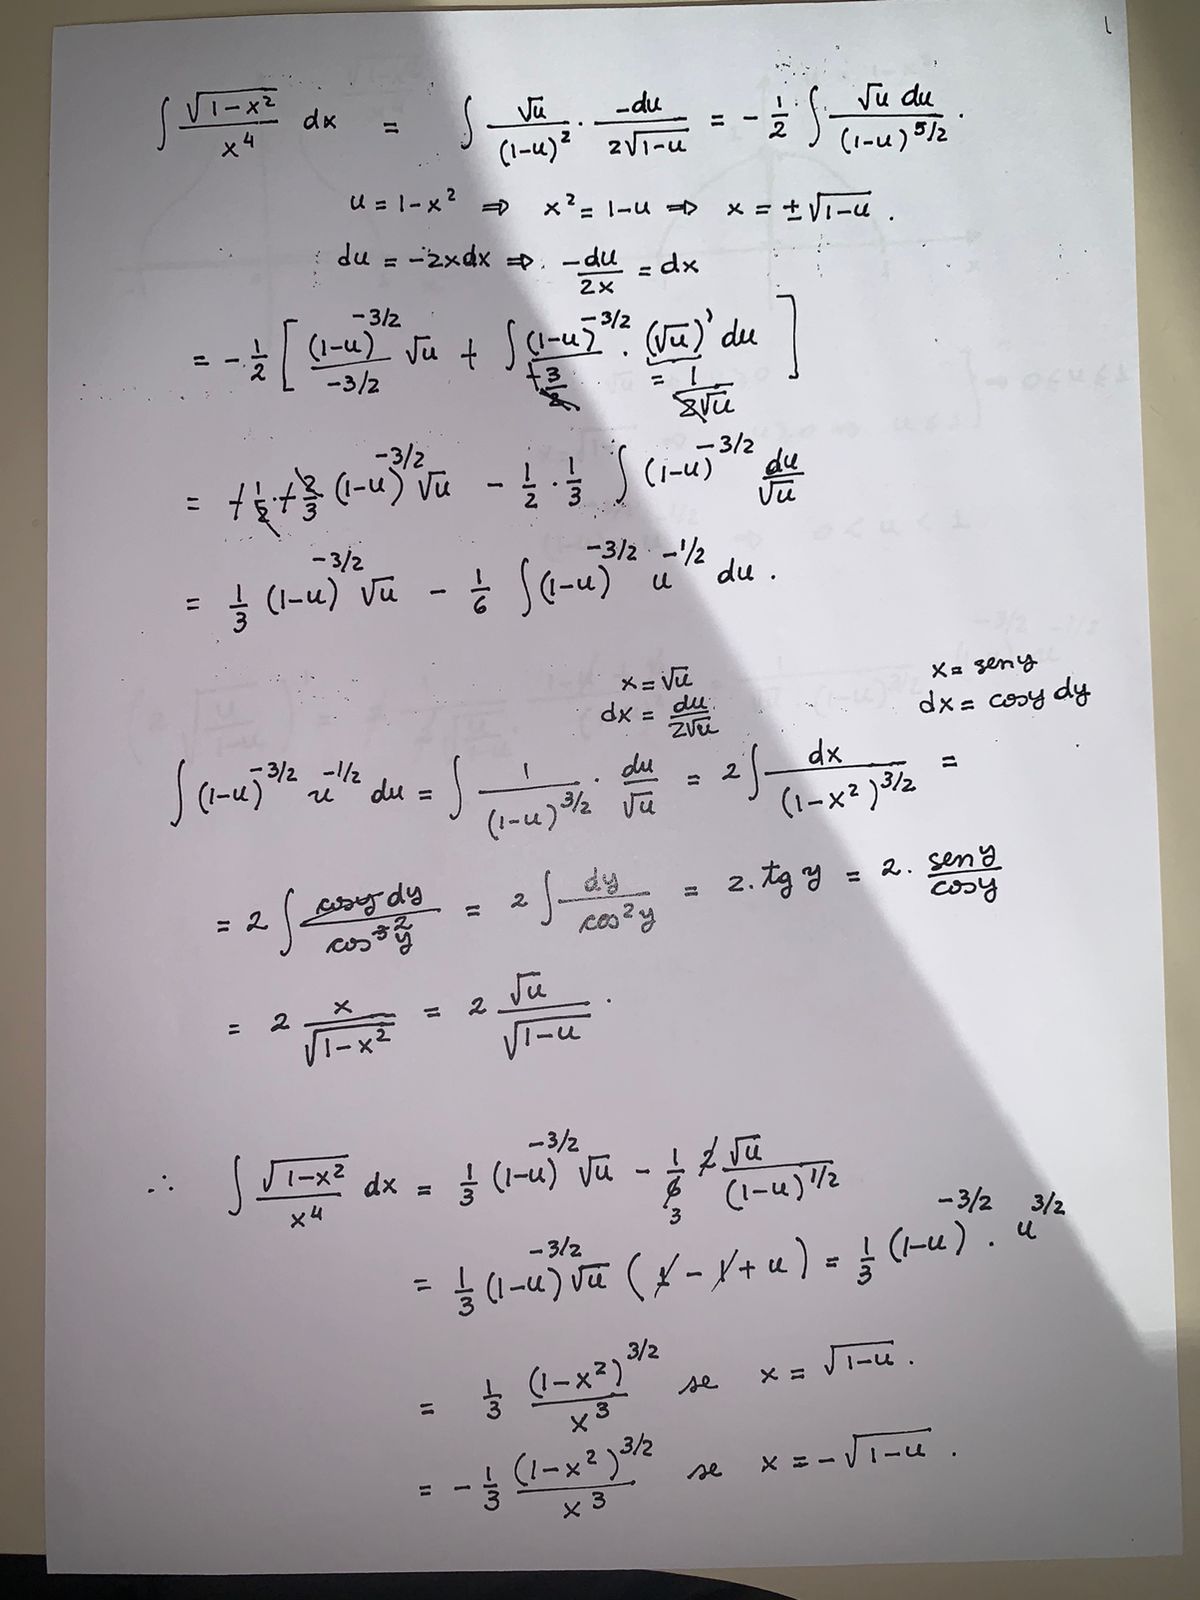 1
∫ √(1-x²)/x⁴ dx = ∫ √u/(1-u)² · -du/(2√(1-u)) = -1/2 · ∫ √u du/(1-u)^(5/2) .
u = 1-x² ⇒ x² = 1-u ⇒ x = ±√(1-u) .
du = -2xdx ⇒ -du/2x = dx
= -1/2 [ (1-u)^(-3/2)/(-3/2) √u + ∫ (1-u)^(-3/2)/(+3/2) · (√u)' du ]
= 1/(2√u)
= +1/2 · +2/3 (1-u)^(-3/2) √u - 1/2 · 1/3 ∫ (1-u)^(-3/2) du/√u
= 1/3 (1-u)^(-3/2) √u - 1/6 ∫ (1-u)^(-3/2) · u^(-1/2) du .
x = √u x = sen y
dx = du/(2√u) dx = cosy dy
∫ (1-u)^(-3/2) u^(-1/2) du = ∫ 1/(1-u)^(3/2) · du/√u = 2 ∫ dx/(1-x²)^(3/2) =
= 2 ∫ cosy dy/cos³ ² y = 2 ∫ dy/cos² y = 2. tg y = 2. sen y/cosy
= 2 x/√(1-x²) = 2 √u/√(1-u) .
∴ ∫ √(1-x²)/x⁴ dx = 1/3 (1-u)^(-3/2) √u - 1/6 3 2 √u/(1-u)^(1/2)
= 1/3 (1-u)^(-3/2) √u ( 1 - 1 + u ) = 1/3 (1-u)^(-3/2) . u^(3/2)
= 1/3 (1-x²)^(3/2)/x³ se x = √(1-u) .
= -1/3 (1-x²)^(3/2)/x³ se x = -√(1-u) .